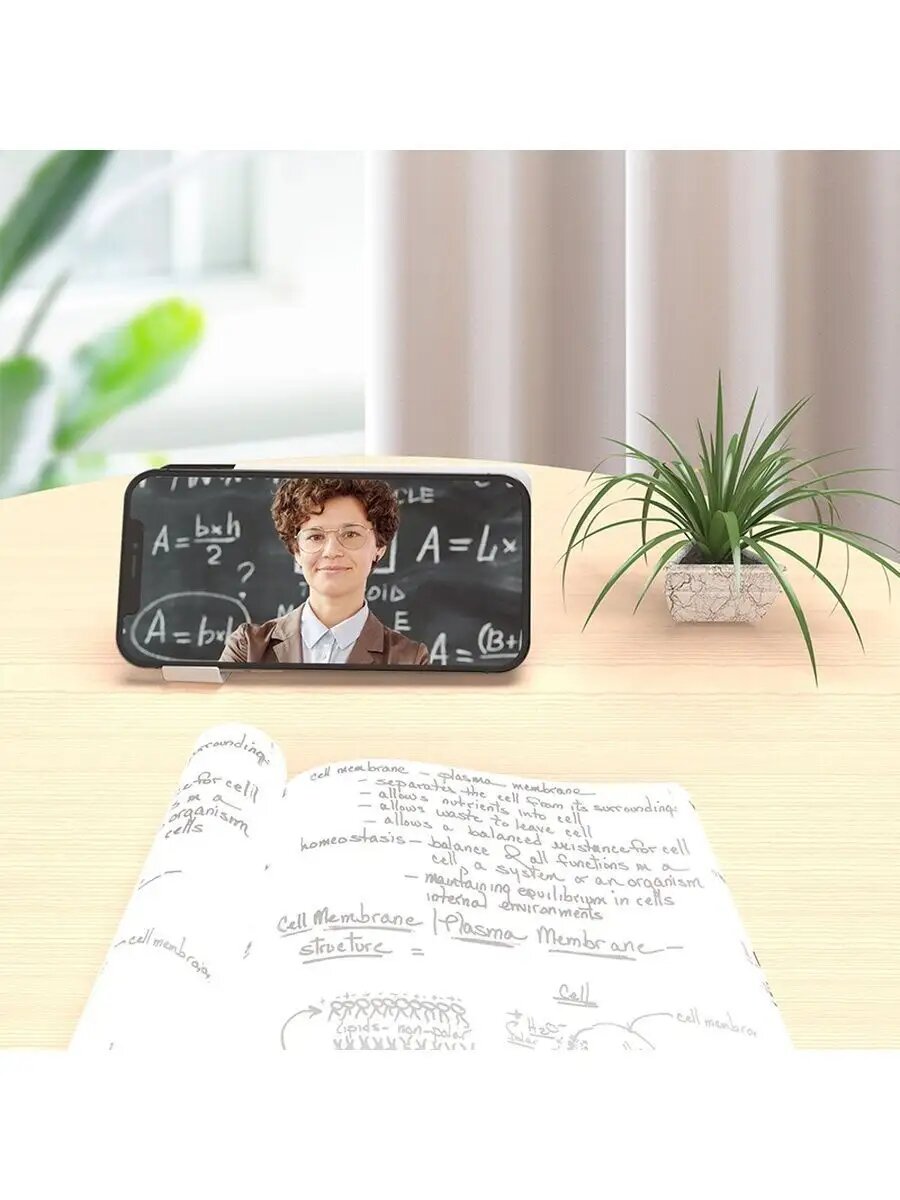 CLE
A = bxh
2
?
A = Lx
OID
M
E
A = bxh
A = (B+
surrounding
for cell
m a
organism
cells
cell membrane - plasma membrane
- separates the cell from its surrounding
- allows nutrients into cell
- allows waste to leave cell
- allows a balanced existance for cell
homeostasis - balance & all functions in a
cell, a system or an organism
- maintaining equilibrium in cells
internal environments
Cell Membrane | Plasma Membrane -
structure =
cell membra
Cell
lipids - non-polar
H2O
polar
cell membra